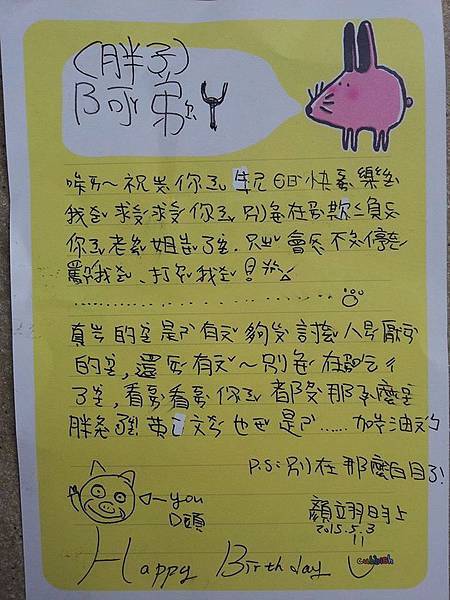 (胖子)
阿弟
唉~祝你生日快樂
我求求你別在欺負
你老姐了.只會不停
罵我、打我!
真的是有夠討人厭
的,還有~別在吃
了,看看你都那麼
胖了英文也是......加油ㄅ
P.S:別在那麼白目了!
you
D頭
顏翊 上
2015.5.3
11
Happy Birthday